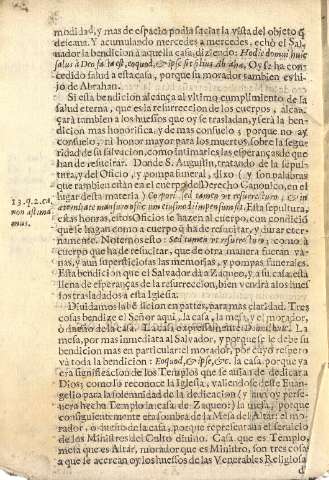 modidad, y mas de espacio podia saciar la vista del objeto q̃
deseaua. Y acumulando mercedes a mercedes, echó el Sal-
uador la bendicion à aquella casa, diziendo: Hodie domui huic
salus à Deo facta est, eo quod, & ipse sit filius Abrahæ, Oy se ha con-
cedido salud a esta casa, porque su morador tambien es hi-
jo de Abrahan.
Si esta bendicion alcança al vltimo cumplimiento de la
salud eterna, que es la resurreccion de los cuerpos, alcan-
çarà tambien a los huessos que oy se trasladan, y serà la ben-
dicion mas honorifica, y de mas consuelo; porque no ay
consuelo, ni honor mayor para los muertos, sobre la segu-
ridad de su saluacion, como intimarles las esperanças de que
han de resucitar. Donde S. Augustin, tratando de la sepul-
tura, y del Oficio, y pompa funeral, dixo (y son palabras
que tambien estàn en el cuerpo del Derecho Canonico, en el
lugar desta materia)
13. q. 2. ca.
non æstima
mus.
Esta sepultura,
estas honras, estos Oficios se hazen al cuerpo, con condiciõ
que se hagan como a cuerpo q̃ ha de resucitar, y durar eter-
namente. Notemos esto: Sed tamen vt resurrecturo; como à
cuerpo que ha de resucitar, que de otra manera fueran va-
nas, y aun supersticiosas las memorias, y pompas funerales.
Esta bendicion que el Saluador dà a Zaqueo, y a su casa, està
llena de esperanças de la resurreccion, bien vendrà a los hues-
sos trasladados a esta Iglesia.
Diuidamos la bendicion en partes, para mas claridad. Tres
cosas bendize el Señor aqui, la casa, la mesa, y el morador,
ò dueño de la casa. La casa expressamente: Domui huic. La
mesa, por mas inmediata al Saluador, y porque se le debe su
bendicion mas en particular: el morador, por cuyo respeto
và toda la bendicion: Eo quod, & ipse, &c. la casa porque ya
era significacion de los Templos que se auian de dedicar a
Dios; como lo reconoce la Iglesia, valiendose deste Euan-
gelio para la solemnidad de la dedicacion (y aun oy perse-
uera hecho Templo la casa de Zaqueo:) la mesa, porque
por siguiente monte en la sombra de la Mesa del Altar: el mo-
rador, ò dueño de la casa, porque representaua el seruicio
de los Ministros del Culto diuino. Casa que es Templo,
mesa que es Altar, morador que es Ministro, son tres cosas
a que se acercan oy los huessos de las Venerables Religiosas
d